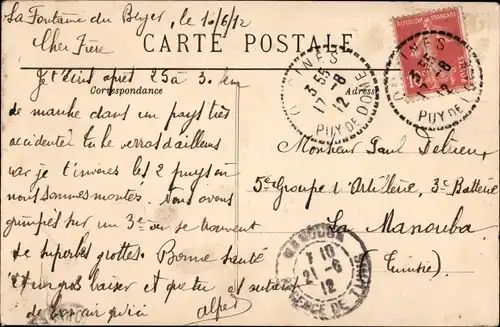 La Fontaine du Berger, le 10/6/12
Cher Frère
CARTE POSTALE
Correspondance
Adresse
Je t'écris après 25 à 3. km
de marche dans un pays très
accidenté tu le verras d'ailleurs
car je t'envoie les 2 puys où
nous sommes montés. Nous avons
grimpés sur un 3e où se trouvent
de superbes grottes. Bonne santé
et un gros baiser et que tu
de bon air d'ici
Alfred
Monsieur Paul
5e Groupe d'Artillerie, 3e Batterie
La Manouba
(Tunisie)
RÉPUBLIQUE FRANÇAISE
10
POSTES
3 55
17 -8
12
PUY DE DOME
NES
55
-8
12
PUY DE
MANOUBA
7 10
21 -6
12
REGENCE DE TUNIS